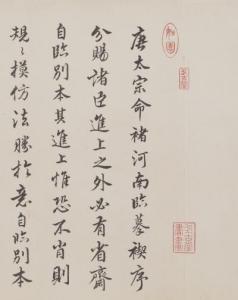 唐太宗命褚河南臨摹禊序
分賜諸臣進上之外必有省齋
自臨別本其進上惟恐不肖則
規〻摸仿法勝於意自臨別本